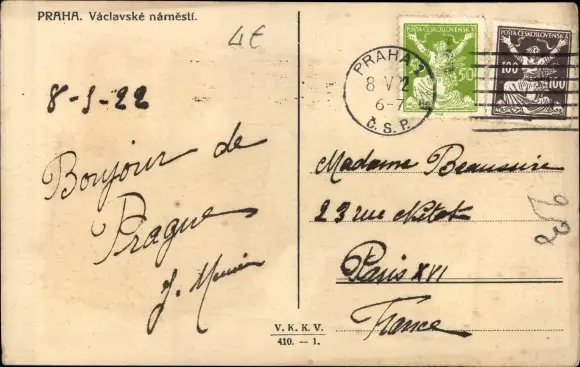 PRAHA. Václavské náměstí.
4€
8-5-22
Bonjour de
Prague
J.
V. K. K. V.
410. — 1.
POŠTA ČESKOSLOVENSKÁ
50
POŠTA ČESKOSLOVENSKÁ
100 100
PRAHA 2
8 V 22
6-7
Č. S. P.
Madame Beausire
23 rue Nitot
Paris XVI
France